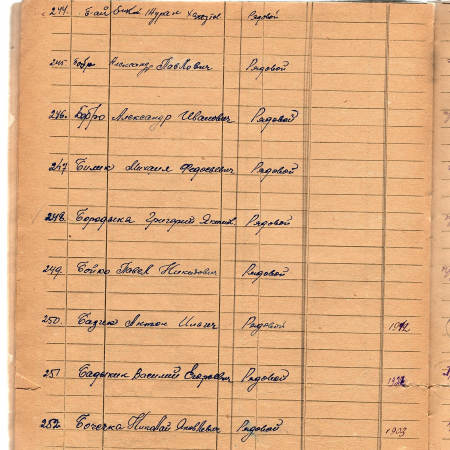 244. Рядовой
245 Бобр Александр Павлович Рядовой
246. Бобро Александр Иванович Рядовой
247 Билик Михаил Федосеевич Рядовой
248. Бородыка Григорий Рядовой
249. Бойко Павел Никитович Рядовой
250. Антон Ильич Рядовой 1912
251 Бадыкин Василий Егорович Рядовой
252. Бочечка Николай Яковлевич Рядовой 1903